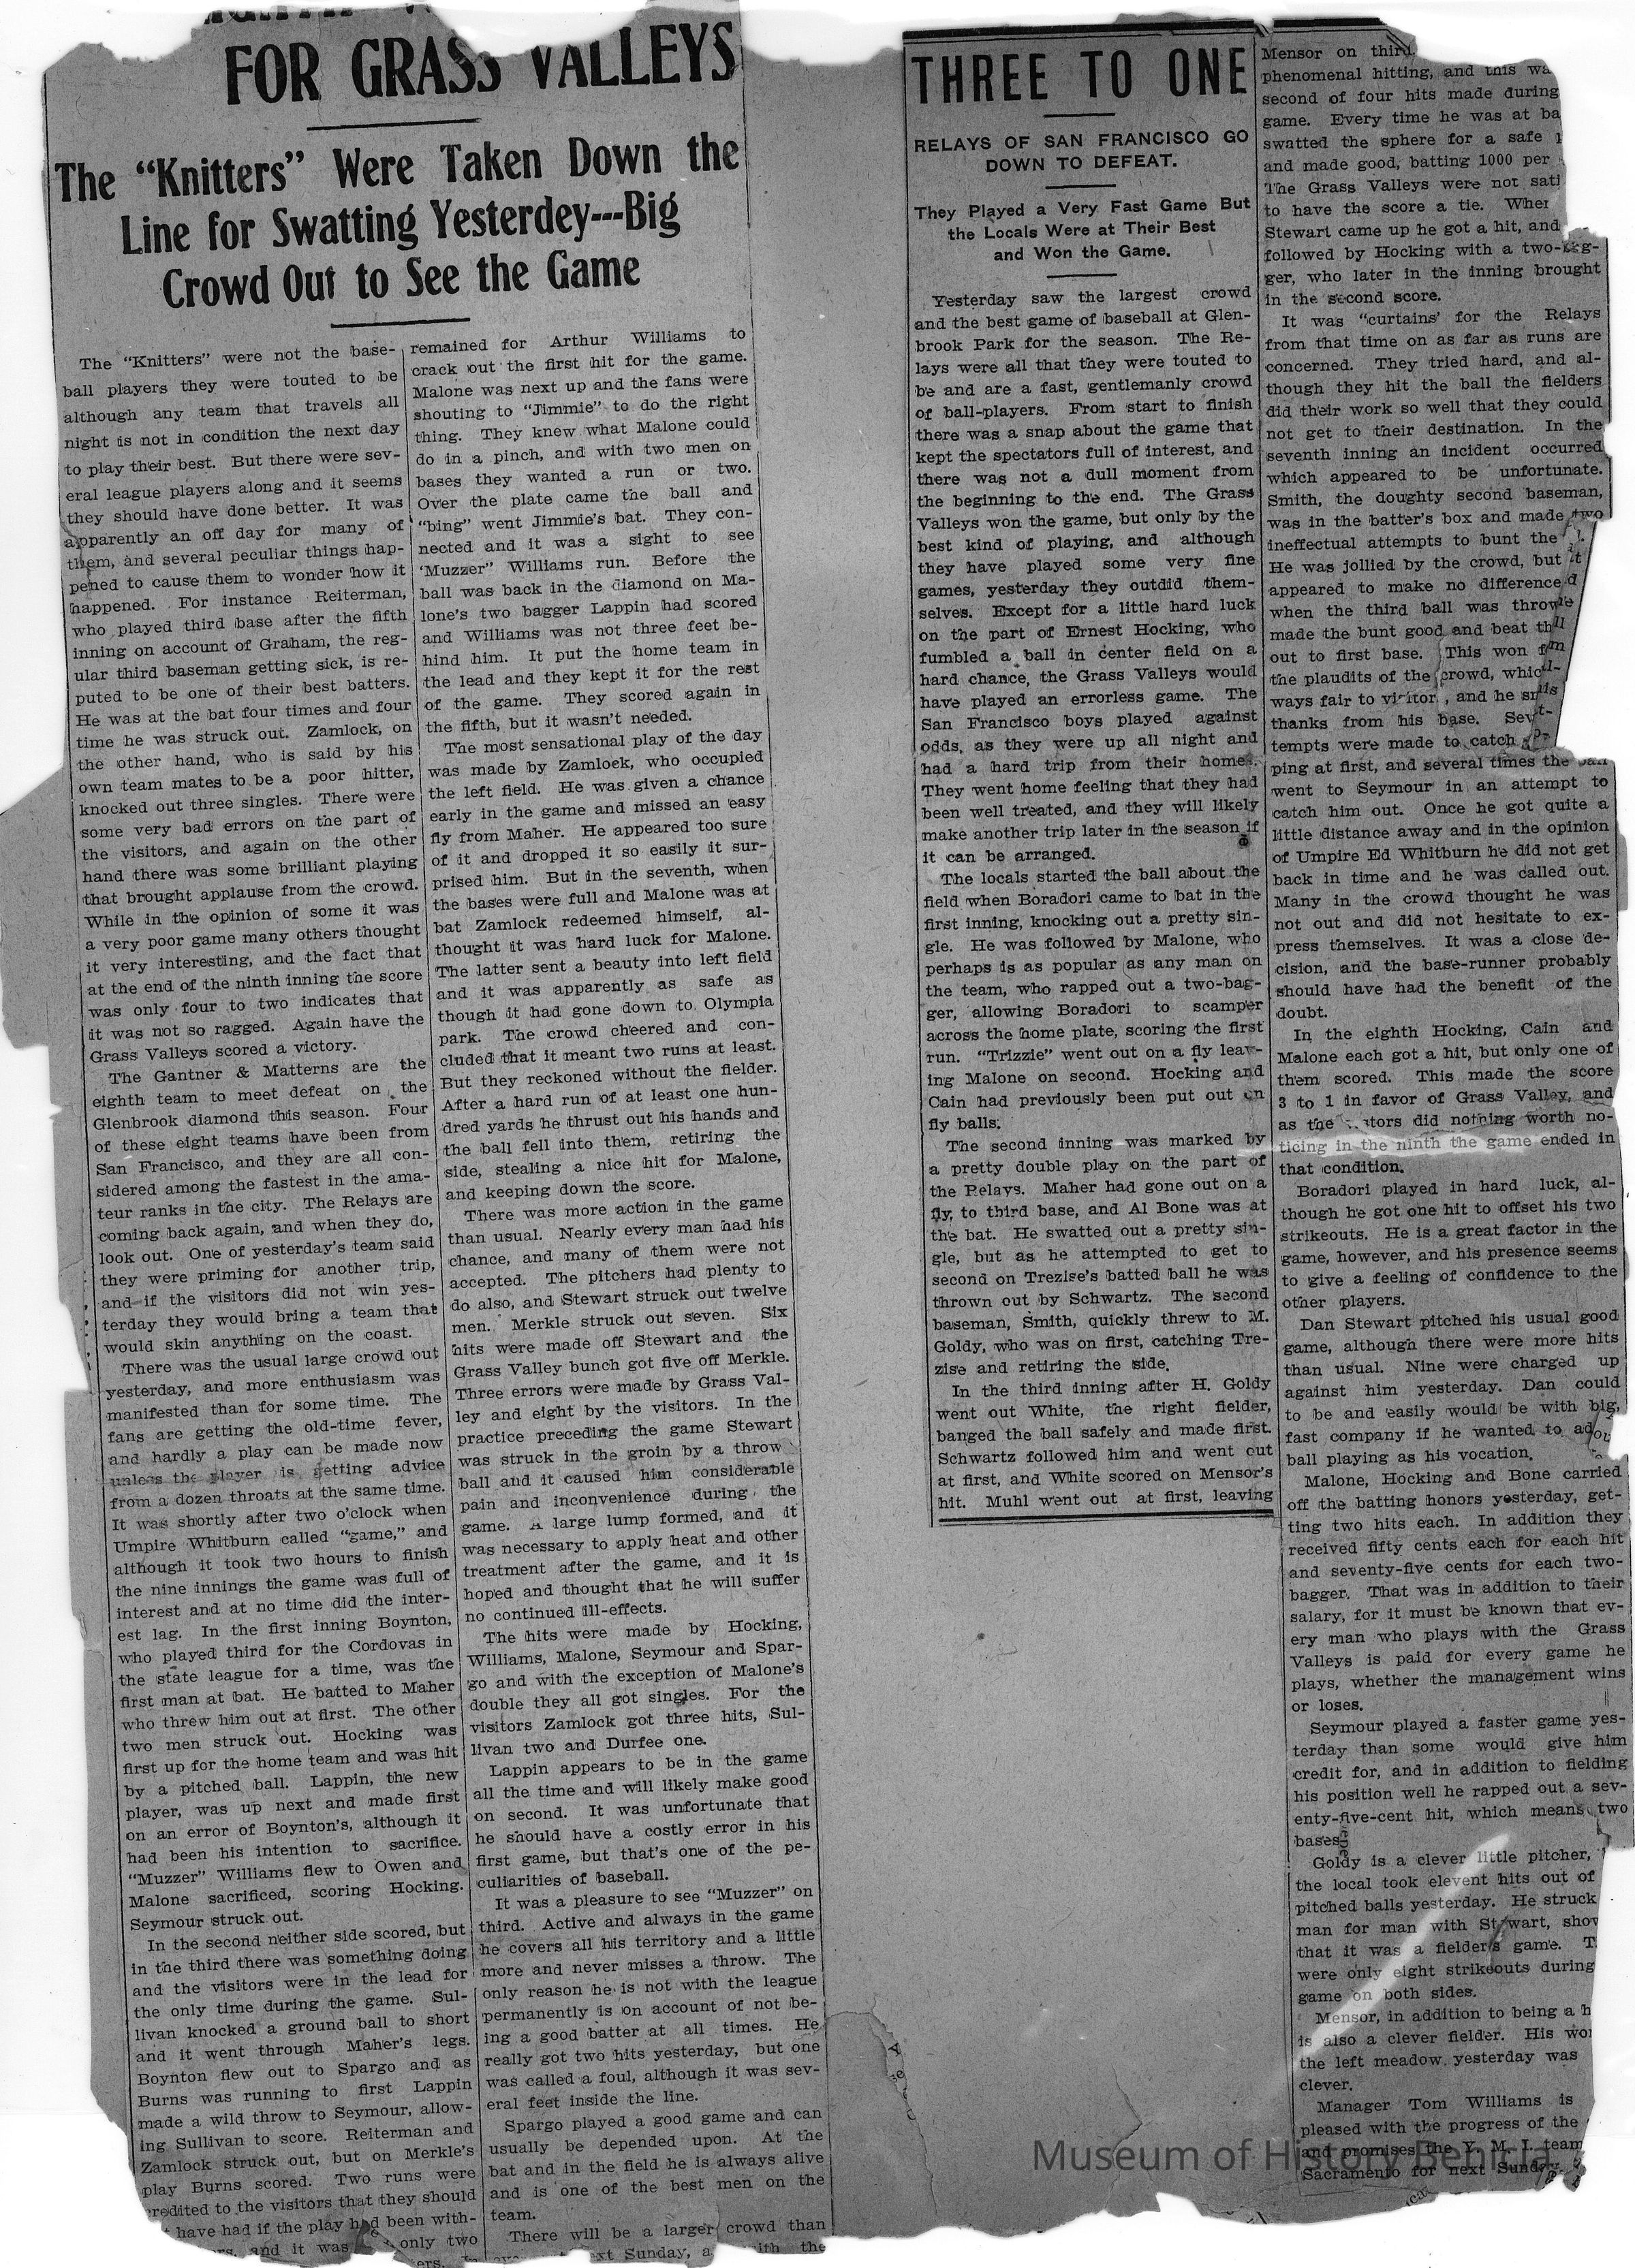 FOR GRASS VALLEYS
The “Knitters” Were Taken Down the
Line for Swatting Yesterdey---Big
Crowd Out to See the Game
The “Knitters” were not the base-
ball players they were touted to be
although any team that travels all
night is not in condition the next day
to play their best. But there were sev-
eral league players along and it seems
they should have done better. It was
apparently an off day for many of
them, and several peculiar things hap-
pened to cause them to wonder how it
happened. For instance Reiterman,
who played third base after the fifth
inning on account of Graham, the reg-
ular third baseman getting sick, is re-
puted to be one of their best batters.
He was at the bat four times and four
time he was struck out. Zamlock, on
the other hand, who is said by his
own team mates to be a poor hitter,
knocked out three singles. There were
some very bad errors on the part of
the visitors, and again on the other
hand there was some brilliant playing
that brought applause from the crowd.
While in the opinion of some it was
a very poor game many others thought
it very interesting, and the fact that
at the end of the ninth inning the score
was only four to two indicates that
it was not so ragged. Again have the
Grass Valleys scored a victory.
The Gantner & Matterns are the
eighth team to meet defeat on the
Glenbrook diamond this season. Four
of these eight teams have been from
San Francisco, and they are all con-
sidered among the fastest in the ama-
teur ranks in the city. The Relays are
coming back again, and when they do,
look out. One of yesterday's team said
they were priming for another trip,
and if the visitors did not win yes-
terday they would bring a team that
would skin anything on the coast.
There was the usual large crowd out
yesterday, and more enthusiasm was
manifested than for some time. The
fans are getting the old-time fever,
and hardly a play can be made now
unless the player is getting advice
from a dozen throats at the same time.
It was shortly after two o'clock when
Umpire Whitburn called “game,” and
although it took two hours to finish
the nine innings the game was full of
interest and at no time did the inter-
est lag. In the first inning Boynton,
who played third for the Cordovas in
the state league for a time, was the
first man at bat. He batted to Maher
who threw him out at first. The other
two men struck out. Hocking was
first up for the home team and was hit
by a pitched ball. Lappin, the new
player, was up next and made first
on an error of Boynton's, although it
had been his intention to sacrifice.
“Muzzer” Williams flew to Owen and
Malone sacrificed, scoring Hocking.
Seymour struck out.
In the second neither side scored, but
in the third there was something doing
and the visitors were in the lead for
the only time during the game. Sul-
livan knocked a ground ball to short
and it went through Maher's legs.
Boynton flew out to Spargo and as
Burns was running to first Lappin
made a wild throw to Seymour, allow-
ing Sullivan to score. Reiterman and
Zamlock struck out, but on Merkle's
play Burns scored. Two runs were
credited to the visitors that they should
have had if the play had been with-
and it was only two
remained for Arthur Williams to
crack out the first hit for the game.
Malone was next up and the fans were
shouting to “Jimmie” to do the right
thing. They knew what Malone could
do in a pinch, and with two men on
bases they wanted a run or two.
Over the plate came the ball and
“bing” went Jimmie's bat. They con-
nected and it was a sight to see
'Muzzer” Williams run. Before the
ball was back in the diamond on Ma-
lone's two bagger Lappin had scored
and Williams was not three feet be-
hind him. It put the home team in
the lead and they kept it for the rest
of the game. They scored again in
the fifth, but it wasn't needed.
The most sensational play of the day
was made by Zamlock, who occupied
the left field. He was given a chance
early in the game and missed an easy
fly from Maher. He appeared too sure
of it and dropped it so easily it sur-
prised him. But in the seventh, when
the bases were full and Malone was at
bat Zamlock redeemed himself, al-
thought it was hard luck for Malone.
The latter sent a beauty into left field
and it was apparently as safe as
though it had gone down to Olympia
park. The crowd cheered and con-
cluded that it meant two runs at least.
But they reckoned without the fielder.
After a hard run of at least one hun-
dred yards he thrust out his hands and
the ball fell into them, retiring the
side, stealing a nice hit for Malone,
and keeping down the score.
There was more action in the game
than usual. Nearly every man had his
chance, and many of them were not
accepted. The pitchers had plenty to
do also, and Stewart struck out twelve
men. Merkle struck out seven. Six
hits were made off Stewart and the
Grass Valley bunch got five off Merkle.
Three errors were made by Grass Val-
ley and eight by the visitors. In the
practice preceding the game Stewart
was struck in the groin by a throw
ball and it caused him considerable
pain and inconvenience during the
game. A large lump formed, and it
was necessary to apply heat and other
treatment after the game, and it is
hoped and thought that he will suffer
no continued ill-effects.
The hits were made by Hocking,
Williams, Malone, Seymour and Spar-
go and with the exception of Malone's
double they all got singles. For the
visitors Zamlock got three hits, Sul-
livan two and Durfee one.
Lappin appears to be in the game
all the time and will likely make good
on second. It was unfortunate that
he should have a costly error in his
first game, but that's one of the pe-
culiarities of baseball.
It was a pleasure to see “Muzzer” on
third. Active and always in the game
he covers all his territory and a little
more and never misses a throw. The
only reason he is not with the league
permanently is on account of not be-
ing a good batter at all times. He
really got two hits yesterday, but one
was called a foul, although it was sev-
eral feet inside the line.
Spargo played a good game and can
usually be depended upon. At the
bat and in the field he is always alive
and is one of the best men on the
team.
There will be a larger crowd than
Sunday, the
THREE TO ONE
RELAYS OF SAN FRANCISCO GO
DOWN TO DEFEAT.
They Played a Very Fast Game But
the Locals Were at Their Best
and Won the Game.
Yesterday saw the largest crowd
and the best game of baseball at Glen-
brook Park for the season. The Re-
lays were all that they were touted to
be and are a fast, gentlemanly crowd
of ball-players. From start to finish
there was a snap about the game that
kept the spectators full of interest, and
there was not a dull moment from
the beginning to the end. The Grass
Valleys won the game, but only by the
best kind of playing, and although
they have played some very fine
games, yesterday they outdid them-
selves. Except for a little hard luck
on the part of Ernest Hocking, who
fumbled a ball in center field on a
hard chance, the Grass Valleys would
have played an errorless game. The
San Francisco boys played against
odds, as they were up all night and
had a hard trip from their homes.
They went home feeling that they had
been well treated, and they will likely
make another trip later in the season if
it can be arranged.
The locals started the ball about the
field when Boradori came to bat in the
first inning, knocking out a pretty sin-
gle. He was followed by Malone, who
perhaps is as popular as any man on
the team, who rapped out a two-bag-
ger, allowing Boradori to scamper
across the home plate, scoring the first
run. “Trizzie” went out on a fly leav-
ing Malone on second. Hocking and
Cain had previously been put out on
fly balls.
The second inning was marked by
a pretty double play on the part of
the Relays. Maher had gone out on a
fly to third base, and Al Bone was at
the bat. He swatted out a pretty sin-
gle, but as he attempted to get to
second on Trezise's batted ball he was
thrown out by Schwartz. The second
baseman, Smith, quickly threw to M.
Goldy, who was on first, catching Tre-
zise and retiring the side.
In the third inning after H. Goldy
went out White, the right fielder,
banged the ball safely and made first.
Schwartz followed him and went out
at first, and White scored on Mensor's
hit. Muhl went out at first, leaving
Mensor on third.
phenomenal hitting, and this
second of four hits made during
game. Every time he was at
swatted the sphere for a safe
and made good, batting 1000 per
The Grass Valleys were not
to have the score a tie.
Stewart came up he got a hit, and
followed by Hocking with a two-bag-
ger, who later in the inning brought
in the second score.
It was “curtains' for the Relays
from that time on as far as runs are
concerned. They tried hard, and al-
though they hit the ball the fielders
did their work so well that they could
not get to their destination. In the
seventh inning an incident occurred
which appeared to be unfortunate.
Smith, the doughty second baseman,
was in the batter's box and made two
ineffectual attempts to bunt the
He was jollied by the crowd, but it
appeared to make no difference
when the third ball was
made the bunt good and beat
out to first base. This won
the plaudits of the crowd,
ways fair to , and he
thanks from his base.
tempts were made to catch
ping at first, and several times the ball
went to Seymour in an attempt to
catch him out. Once he got quite a
little distance away and in the opinion
of Umpire Ed Whitburn he did not get
back in time and he was called out.
Many in the crowd thought he was
not out and did not hesitate to ex-
press themselves. It was a close de-
cision, and the base-runner probably
should have had the benefit of the
doubt.
In the eighth Hocking, Cain and
Malone each got a hit, but only one of
them scored. This made the score
3 to 1 in favor of Grass Valley, and
as the did nothing worth no-
ticing in the ninth the game ended in
that condition.
Boradori played in hard luck, al-
though he got one hit to offset his two
strikeouts. He is a great factor in the
game, however, and his presence seems
to give a feeling of confidence to the
other players.
Dan Stewart pitched his usual good
game, although there were more hits
than usual. Nine were charged up
against him yesterday. Dan could
to be and easily would be with big,
fast company if he wanted to
ball playing as his vocation.
Malone, Hocking and Bone carried
off the batting honors yesterday, get-
ting two hits each. In addition they
received fifty cents each for each hit
and seventy-five cents for each two-
bagger. That was in addition to their
salary, for it must be known that ev-
ery man who plays with the Grass
Valleys is paid for every game he
plays, whether the management wins
or loses.
Seymour played a faster game yes-
terday than some would give him
credit for, and in addition to fielding
his position well he rapped out a sev-
enty-five-cent hit, which means two
bases.
Goldy is a clever little pitcher,
the local took elevent hits out of
pitched balls yesterday. He struck
man for man with Stewart,
that it was a fielder's game.
were only eight strikeouts during
game on both sides.
Mensor, in addition to being a
is also a clever fielder. His
the left meadow yesterday was
clever.
Manager Tom Williams is
pleased with the progress of the
and promises the Y. M. I. team
Sacramento for next Sunday.
Museum of History Benicia